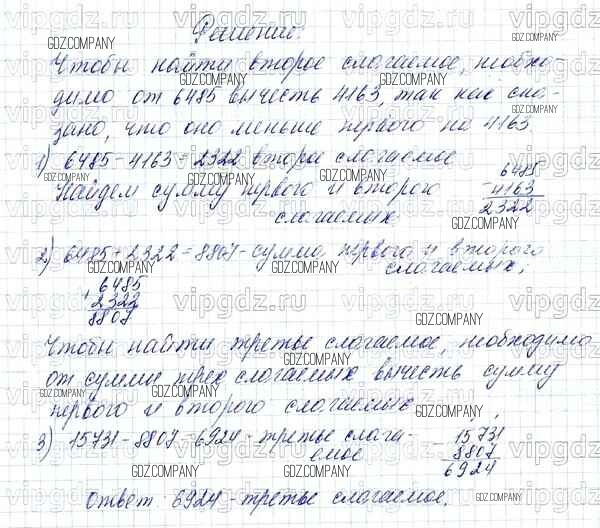 Решение:
Чтобы найти второе слагаемое, необхо-
димо от 6485 вычесть 4163, так как ска-
зано, что оно меньше первого на 4163
1) 6485-4163=2322 второе слагаемые
6485
-4163
2322
Найдем сумму первого и второго
слагаемых
2) 6485+2322=8807-сумма первого и второго
слагаемых;
6485
+2322
8807
Чтобы найти третье слагаемое, необходимо
от суммы трех слагаемых вычесть сумму
первого и второго слагаемых,
3) 15731-8807=6924-третье слага-
емое
-15731
8807
6924
Ответ: 6924-третье слагаемое.
GDZ.COMPANY
vipgdz.ru